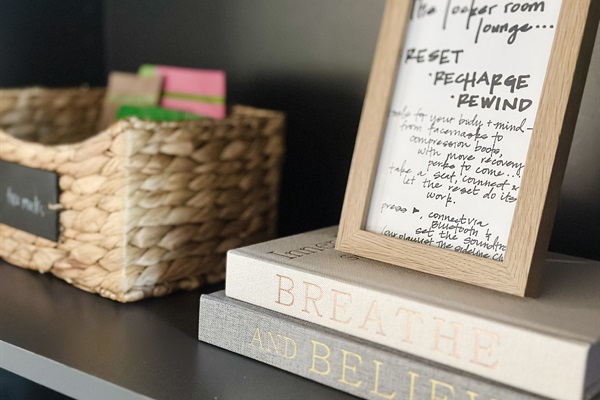 The locker room
lounge...
RESET
·RECHARGE
·REWIND
to your body + mind-
from facemasks to
compression boots,
with more recovery
perks to come...
take a seat, connect &
let the reset do its
work.
press ▶, connect via
Bluetooth &
set the soundtra
BREATHE
AND BELIE